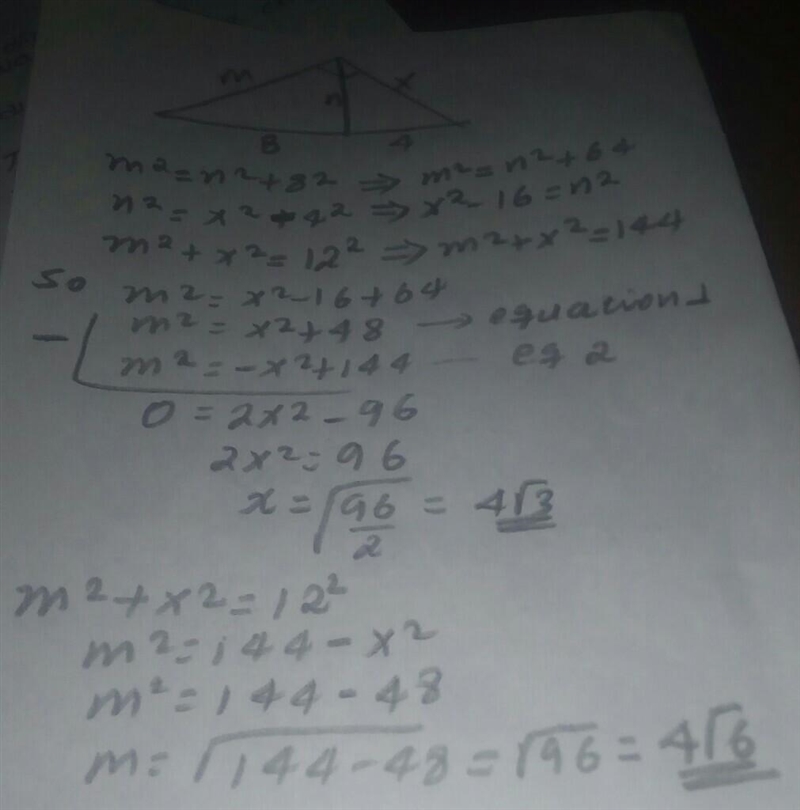 m
n
x
8
4
m² = n² + 8² ⇒ m² = n² + 64
n² = x² - 4² ⇒ x² - 16 = n²
m² + x² = 12² ⇒ m² + x² = 144
So m² = x² - 16 + 64
- m² = x² + 48 → equation 1
m² = -x² + 144 — eq 2
0 = 2x² - 96
2x² = 96
x = √(96/2) = 4√3
m² + x² = 12²
m² = 144 - x²
m² = 144 - 48
m = √(144 - 48) = √96 = 4√6